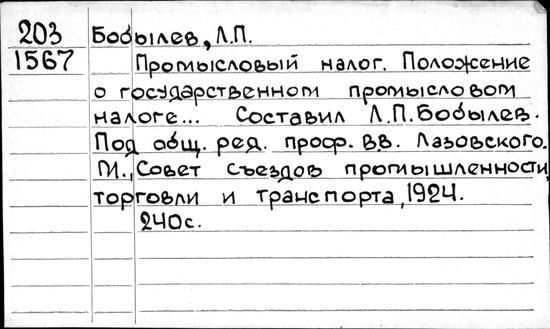 203 Бобылев, Л.П.
1567 Промысловый налог. Положение
о государственном промысловом
налоге... Составил Л.П.Бобылев.
Под общ. ред. проф. В.В. Лазовского.
М., Совет съездов промышленности,
торговли и транспорта, 1924.
240с.